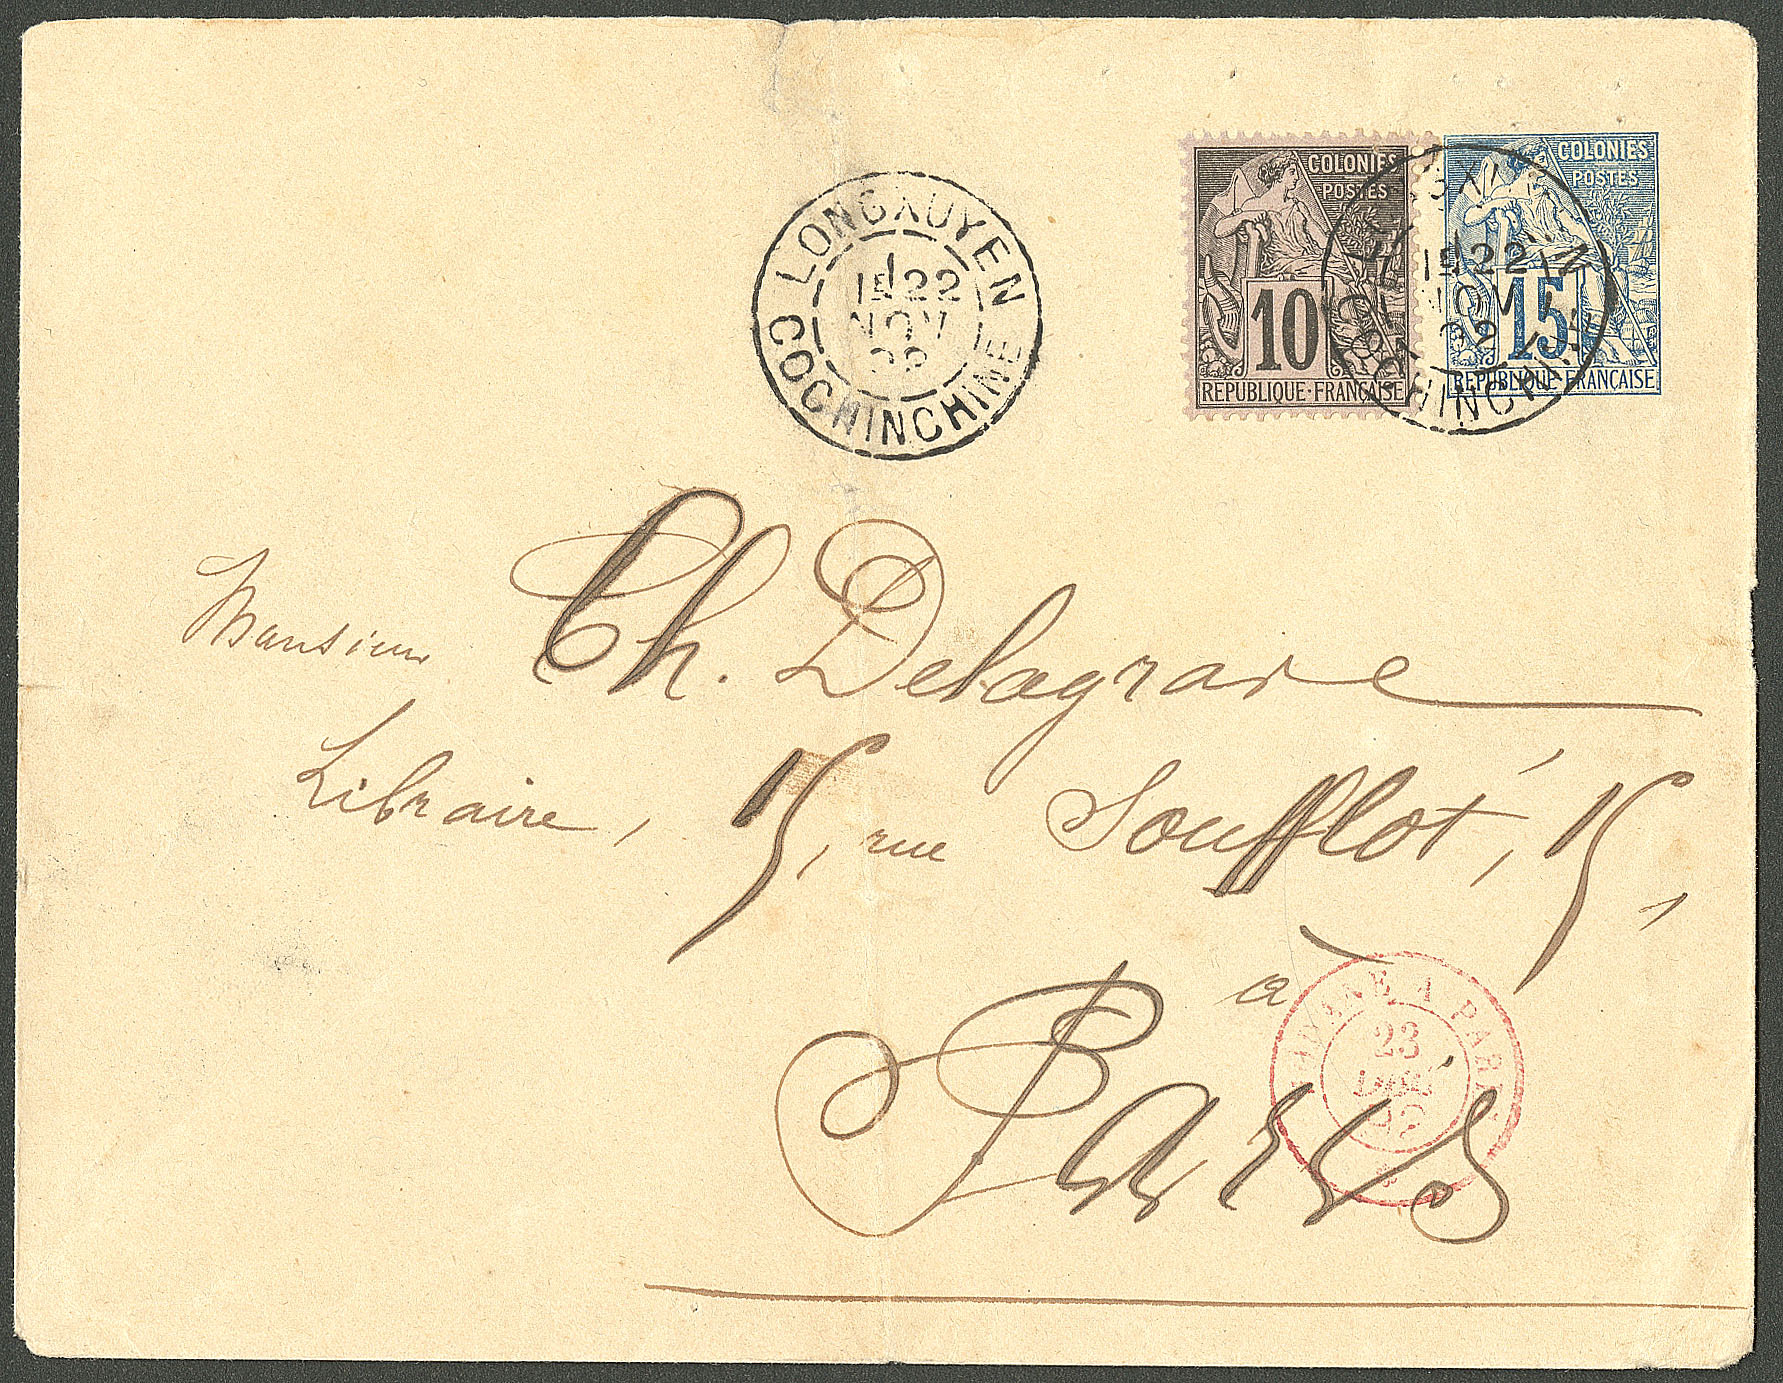 COLONIES
POSTES
10
REPUBLIQUE·FRANÇAISE
COLONIES
POSTES
15
REPUBLIQUE·FRANÇAISE
LONGXUYEN
22
NOV
COCHINCHINE
22
NOV
Monsieur Ch. Delagrave
Libraire, 15, rue Soufflot, 15,
à
Paris
A PARIS
23
DEC
92